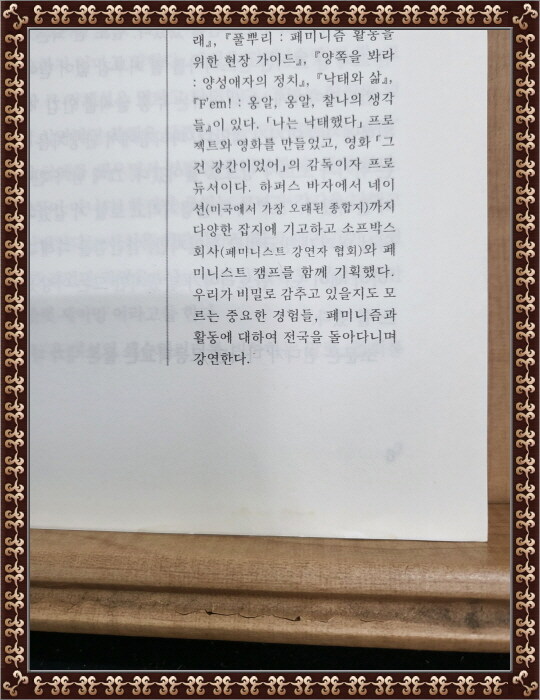 래』, 『풀뿌리 : 페미니즘 활동을
위한 현장 가이드』, 『양쪽을 봐라
: 양성애자의 정치』, 『낙태와 삶』,
『F'em! : 옹알, 옹알, 찰나의 생각
들』이 있다. 「나는 낙태했다」 프로
젝트와 영화를 만들었고, 영화 「그
건 강간이었어」의 감독이자 프로
듀서이다. 하퍼스 바자에서 네이
션(미국에서 가장 오래된 종합지)까지
다양한 잡지에 기고하고 소프박스
회사(페미니스트 강연자 협회)와 페
미니스트 캠프를 함께 기획했다.
우리가 비밀로 감추고 있을지도 모
르는 중요한 경험들, 페미니즘과
활동에 대하여 전국을 돌아다니며
강연한다.